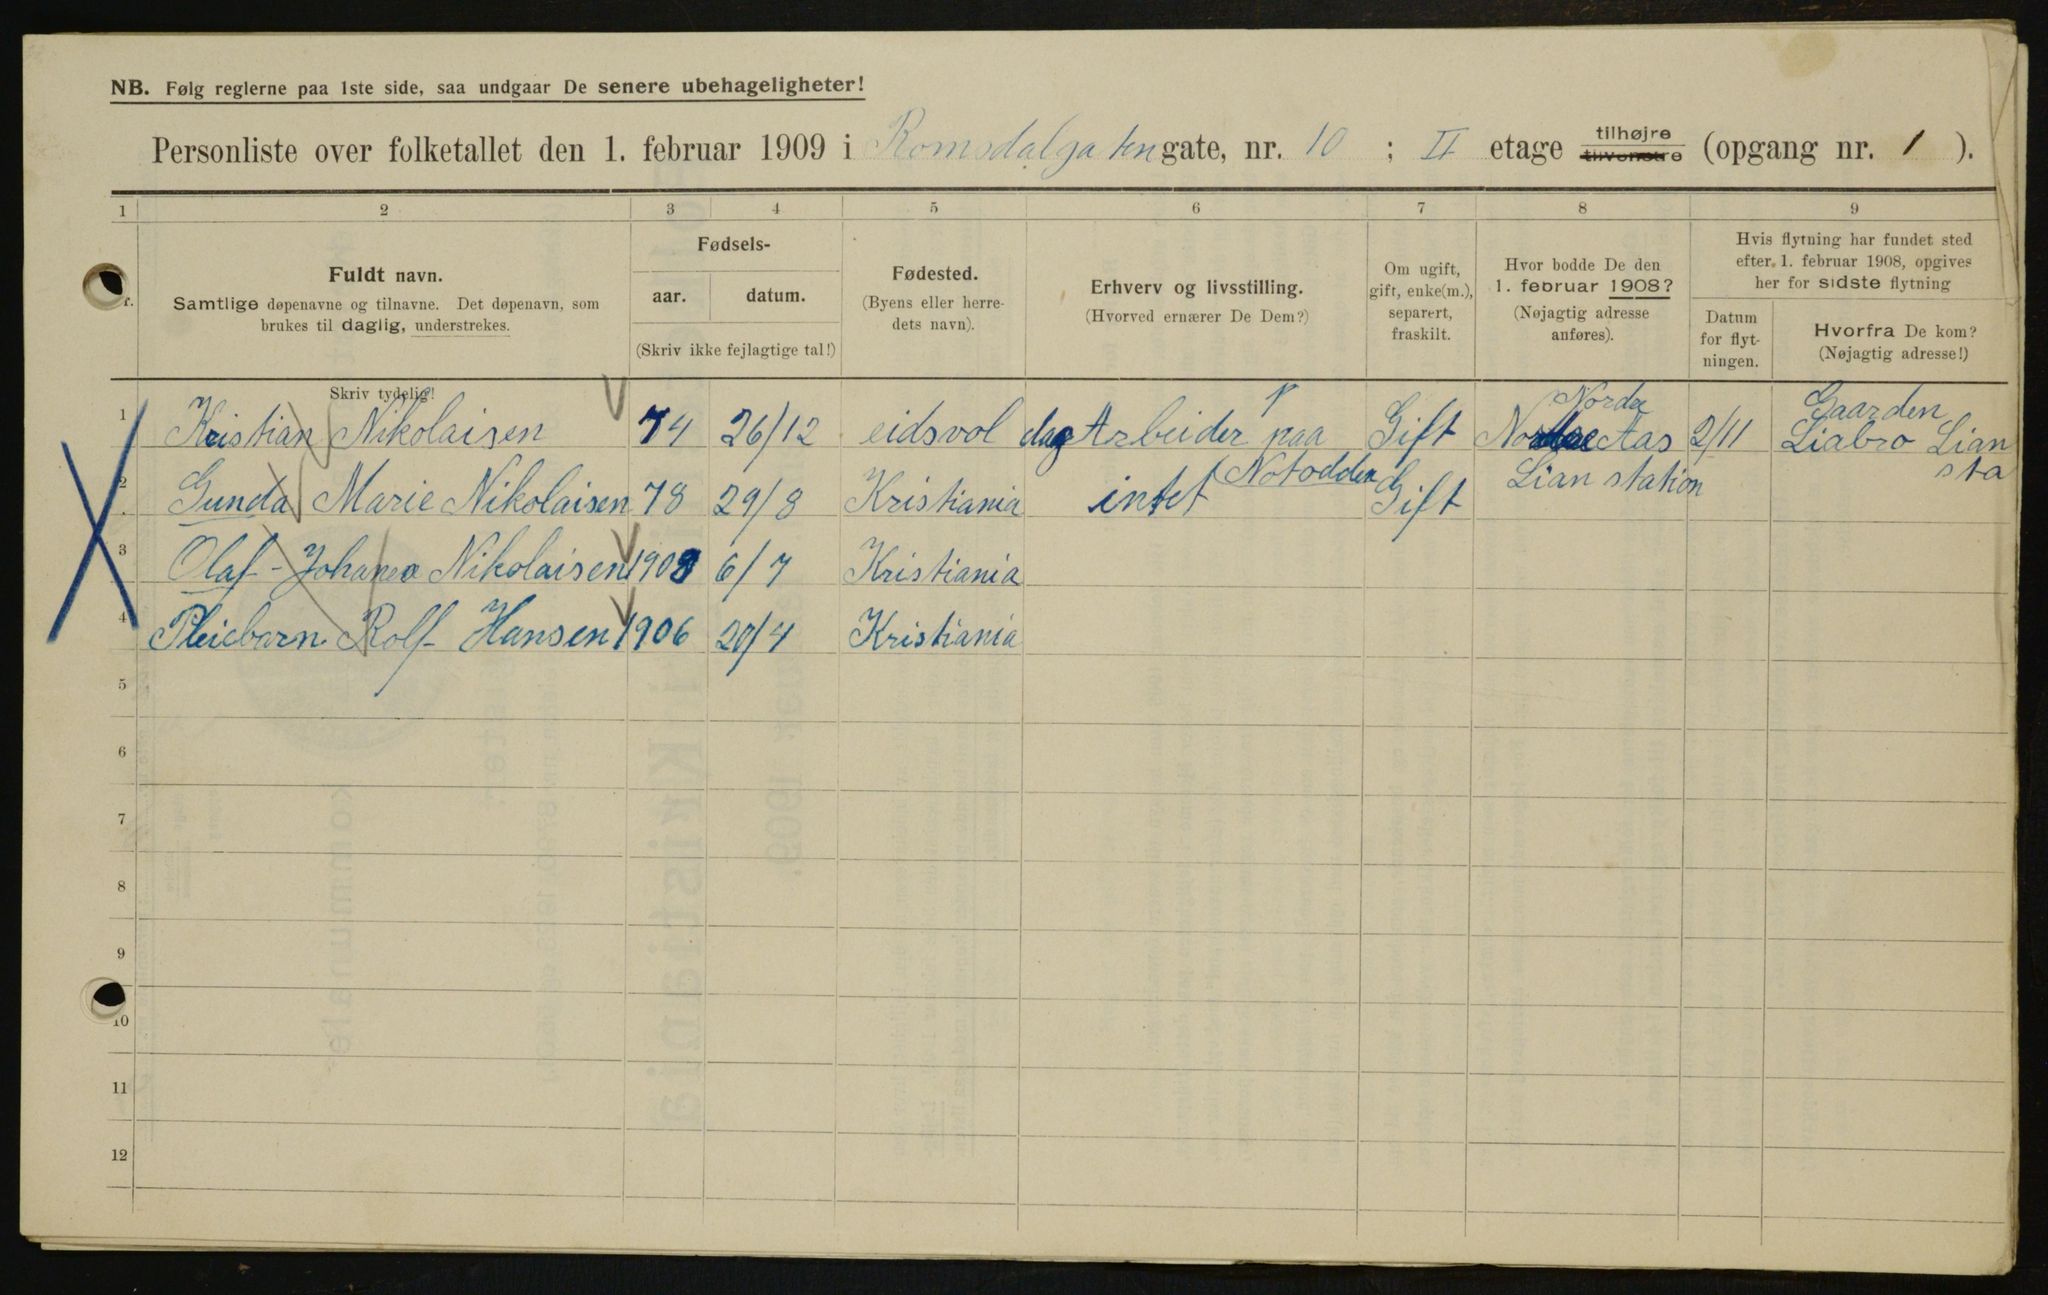 NB. Følg reglerne paa 1ste side, saa undgaar De senere ubehageligheter!
Personliste over folketallet den 1. februar 1909 i Romsdalgaten gate, nr. 10 ; II etage tilhøjre tilvenstre (opgang nr. 1 ).
1 2 3 4 5 6 7 8 9
Fuldt navn.
Samtlige døpenavne og tilnavne. Det døpenavn, som
brukes til daglig, understrekes.
Fødsels-
aar. datum.
(Skriv ikke fejlagtige tal!)
Fødested.
(Byens eller herre-
dets navn).
Erhverv og livsstilling.
(Hvorved ernærer De Dem?)
Om ugift,
gift, enke(m.),
separert,
fraskilt.
Hvor bodde De den
1. februar 1908?
(Nøjagtig adresse
anføres).
Hvis flytning har fundet sted
efter 1. februar 1908, opgives
her for sidste flytning
Datum
for flyt-
ningen.
Hvorfra De kom?
(Nøjagtig adresse!)
Skriv tydelig!
Nordre Gaarden
1 Kristian Nikolaisen 74 26/12 eidsvol dag Arbeider paa Gift Aas 2/11 Liabro Lian
Notodden Lian station sta
2 Gunda Marie Nikolaisen 78 29/8 Kristiania intet Gift
3 Olaf - Nikolaisen 1903 6/7 Kristiania
4 Pleiebarn Rolf Hansen 1906 20/4 Kristiania
5
6
7
8
9
10
11
12